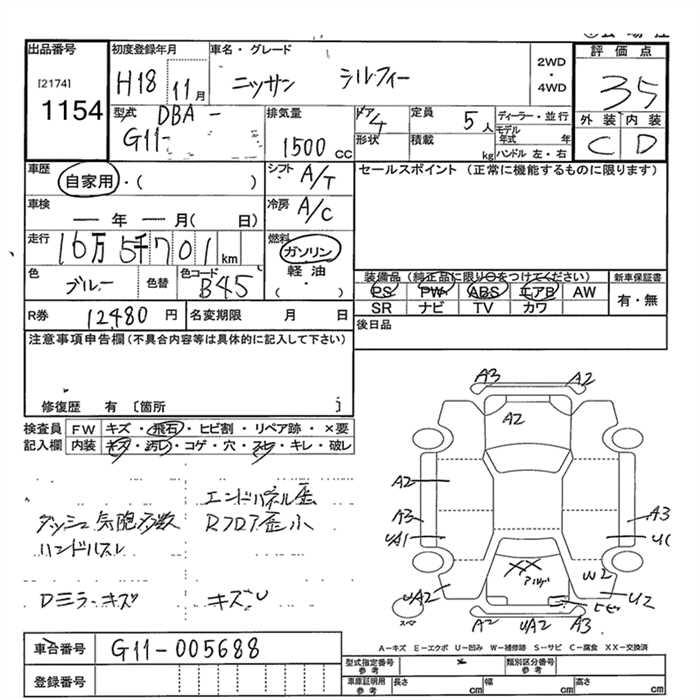 出品番号
[2174]
1154
初度登録年月
H18 11月
車名・グレード
ニッサン シルフィー
2WD
・
4WD
評価点
35
外装 内装
C D
型式 DBA-
G11-
排気量
1500 cc
ドア 4
形状
定員 5人
積載 kg
ディーラー・並行
モデル年式 年
ハンドル 左・右
車歴
自家用・( )
シフト A/T
車検
— 年 — 月( 日)
冷房 A/C
走行
16万5千701km
燃料
ガソリン
軽油
( ・ )
色 ブルー 色替
色コード B45
R券 12,480 円
名変期限 月 日
セールスポイント (正常に機能するものに限ります)
装備品(純正品に限り○をつけてください)
PS PW ABS エアB AW
SR ナビ TV カワ
新車保証書
有・無
後日品
注意事項申告欄(不具合内容等は具体的に記入して下さい)
修復歴 有〔箇所 〕
検査員 FW キズ・飛石・ヒビ割・リペア跡・×要
記入欄 内装 キズ・汚レ・コゲ・穴・スレ・キレ・破レ
エンドパネル歪
ダッシュ気泡多数 Rフロア歪小
ハンドルスレ
Dミラーキズ キズU
A3 A2
A2
A2
A3 A3
UA1 U
XX
W2
UA2 U2
ヒビ
スペア
A2 UA2 A3
車台番号 G11-005688
登録番号
A−キズ E−エクボ U−凹み W−補修跡 S−サビ C−腐食 XX−交換済
型式指定番号 参考
類別区分番号 参考
車庫証明用 参考
長さ cm 幅 cm 高さ cm